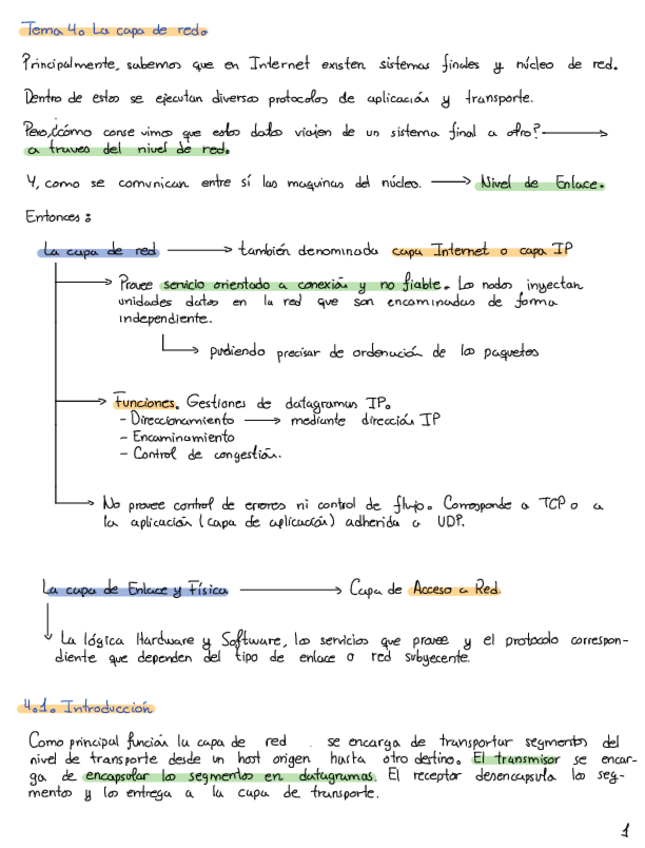 Tema 4. La capa de red.
Principalmente, sabemos que en Internet existen sistemas finales y núcleo de red.
Dentro de estos se ejecutan diversos protocolos de aplicación y transporte.
Pero, ¿cómo conse vimos que estos datos viajen de un sistema final a otro? →
a traves del nivel de red.
Y, como se comunican entre sí las maquinas del núcleo. → Nivel de Enlace.
Entonces :
La capa de red → también denominada capa Internet o capa IP
→ Provee servicio orientado a conexión y no fiable. Los nodos inyectan
unidades datos en la red que son encaminadas de forma
independiente.
→ pudiendo precisar de ordenación de los paquetes
→ Funciones. Gestiones de datagramas IP.
- Direccionamiento → mediante dirección IP
- Encaminamiento
- Control de congestión.
→ No provee control de errores ni control de flujo. Corresponde a TCP o a
la aplicación (capa de aplicación) adherida a UDP.
La capa de Enlace y Física → Capa de Acceso a Red.
La lógica Hardware y Software, los servicios que provee y el protocolo correspon-
diente que dependen del tipo de enlace o red subyecente.
4.1. Introducción
Como principal función la capa de red . se encarga de transportar segmentos del
nivel de transporte desde un host origen hasta otro destino. El transmisor se encar-
ga de encapsolar los segmentos en datagramas. El receptor desencapsula los seg-
mentos y los entrega a la capa de transporte.
1